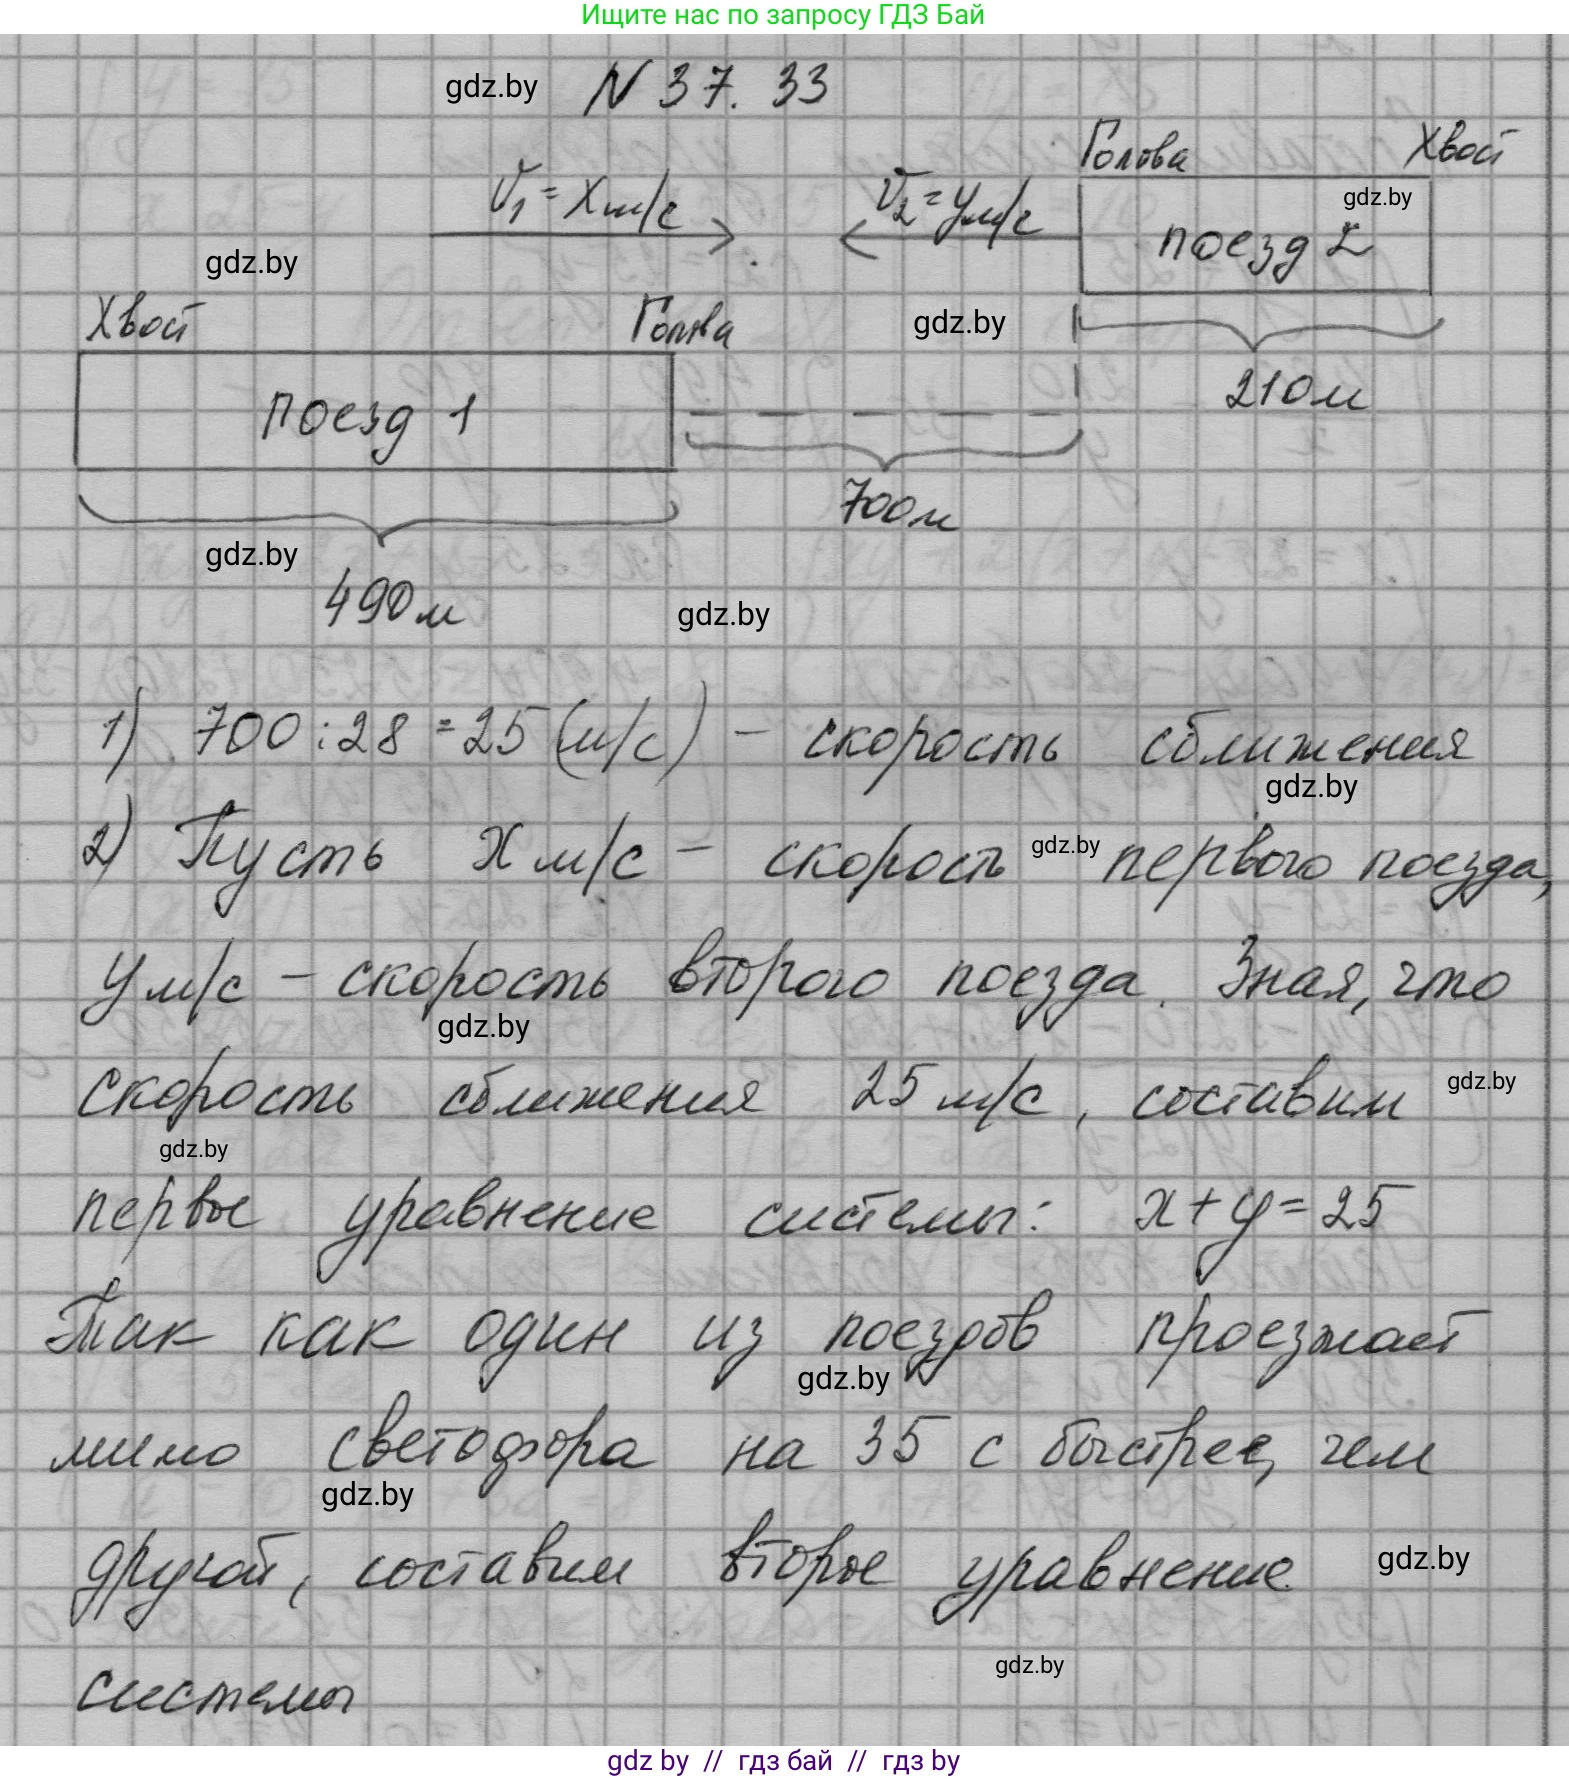 Ищите нас по запросу ГДЗ Бай
gdz.by N 37. 33
Голова Хвост
V₁ = x м/с V₂ = y м/с gdz.by
поезд 2
gdz.by
Хвост Голова gdz.by
поезд 1 210 м
700 м
gdz.by
490 м gdz.by
1) 700 : 28 = 25 (м/с) – скорость сближения
gdz.by
2) Пусть x м/с – скорость gdz.by первого поезда,
y м/с – скорость второго поезда. Зная, что
gdz.by
скорость сближения 25 м/с, составим gdz.by
gdz.by
первое уравнение системы: x + y = 25
Так как один из поездов проезжает
gdz.by
мимо светофора на 35 с быстрее, чем
gdz.by
другой, составим второе уравнение gdz.by
gdz.by
системы
gdz by // гдз бай // гдз by